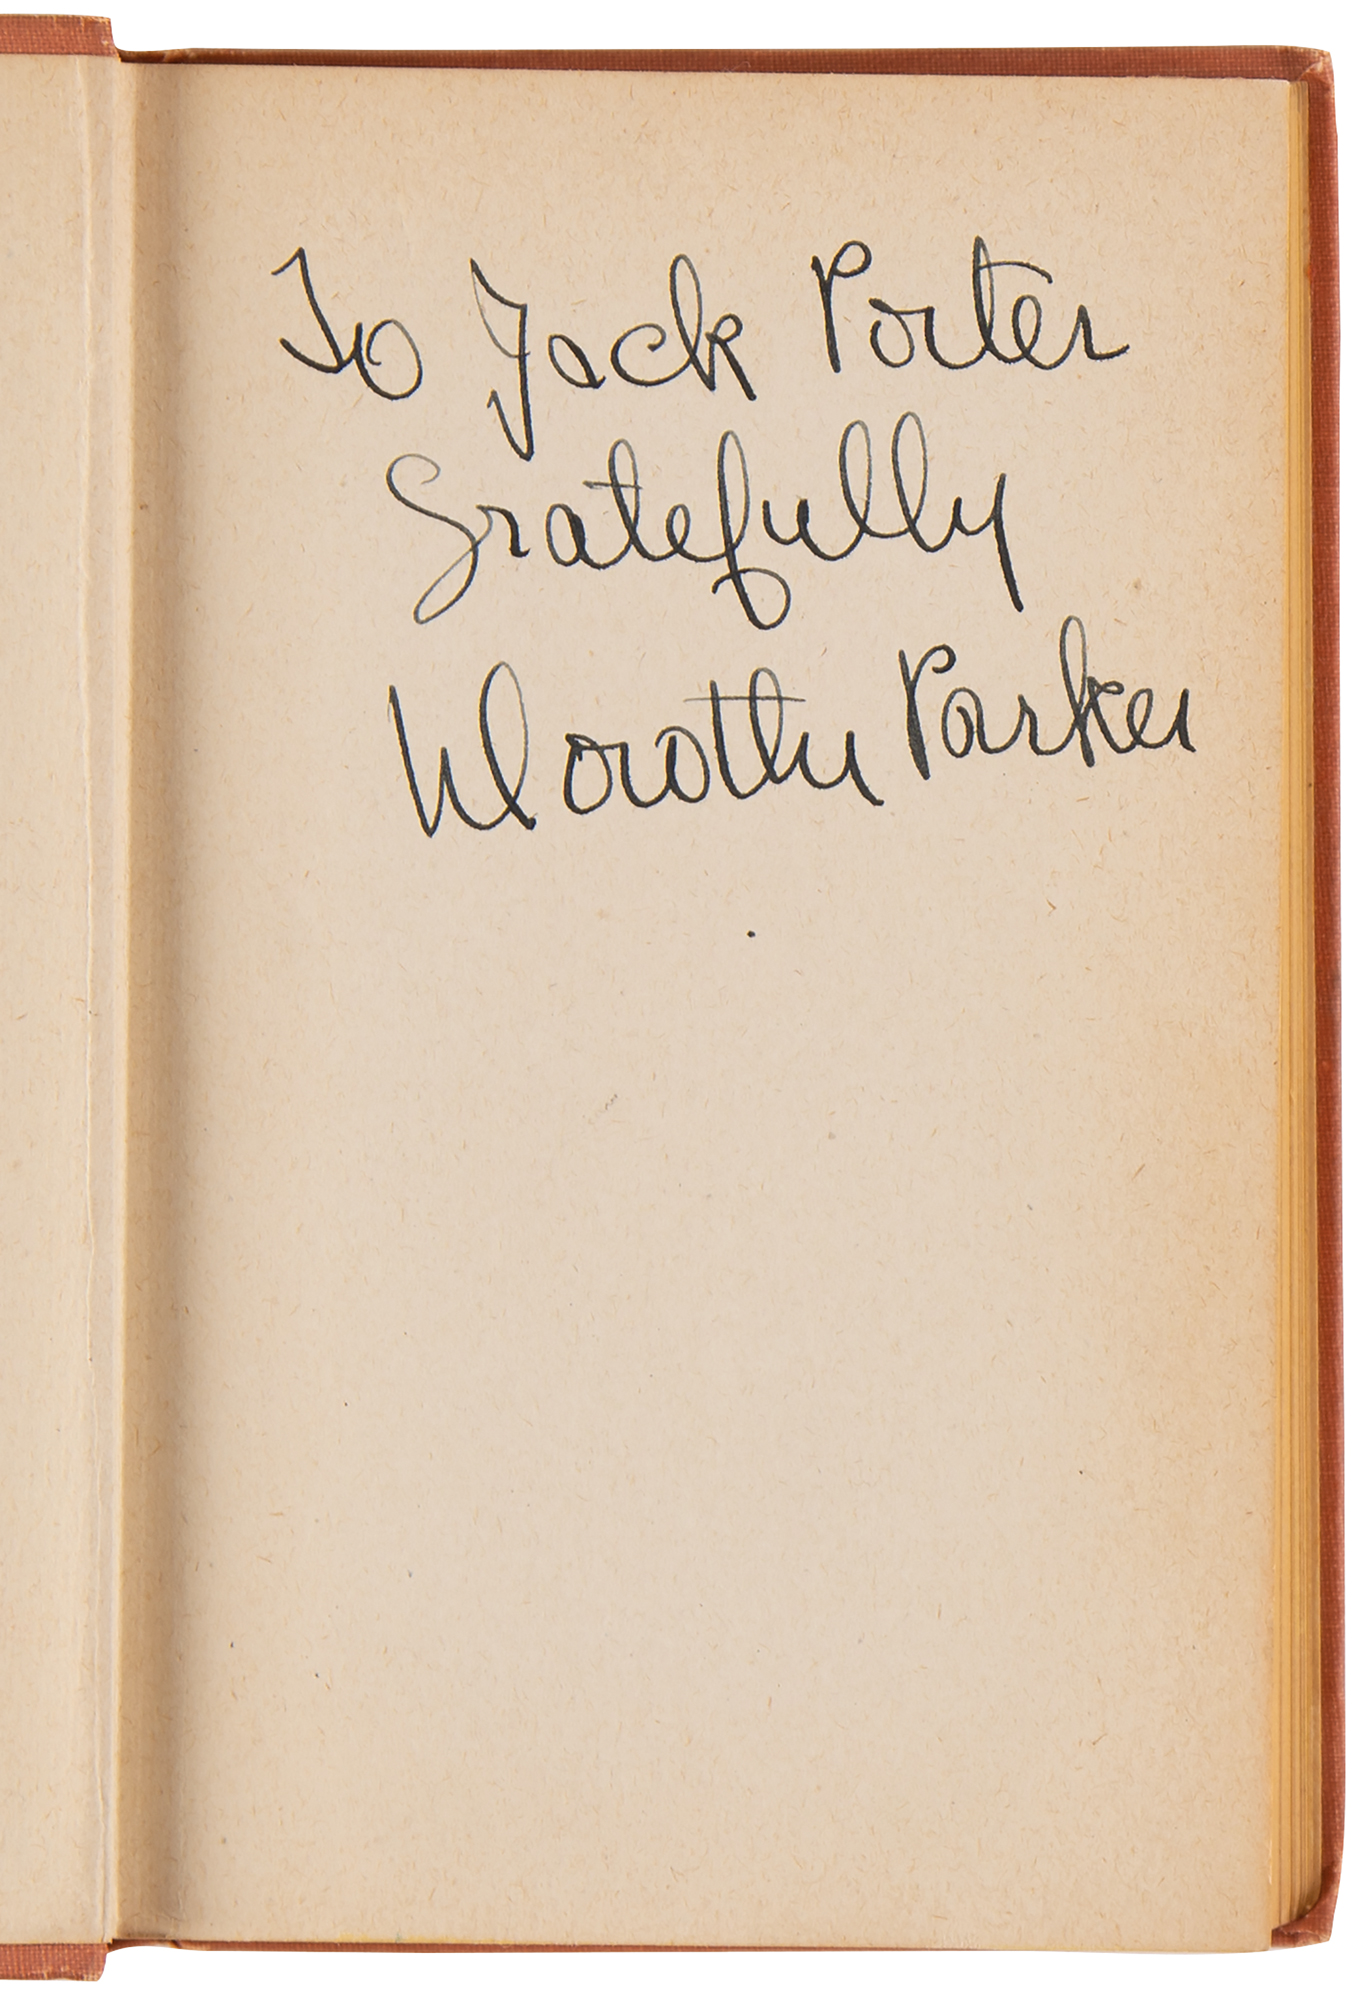 To Jack Porter
Gratefully
Dorothy Parker